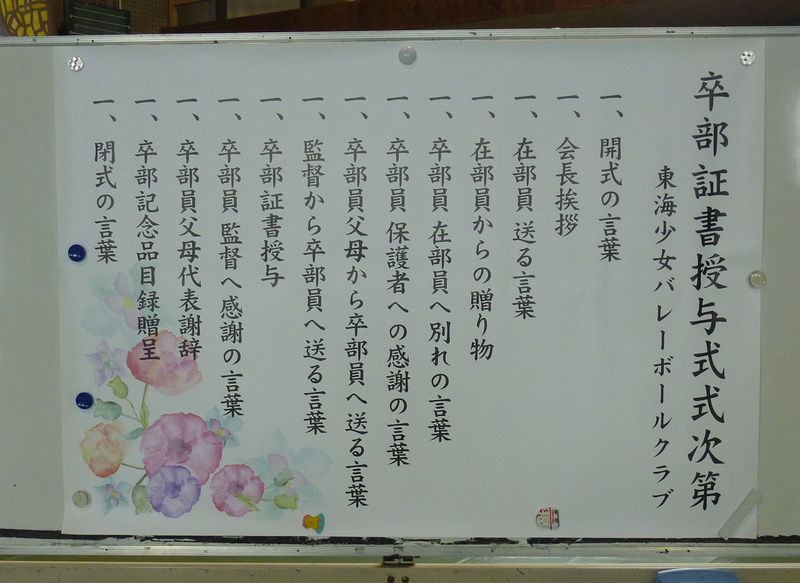 卒部証書授与式式次第
東海少女バレーボールクラブ
一、開式の言葉
一、会長挨拶
一、在部員 送る言葉
一、在部員からの贈り物
一、卒部員 在部員へ別れの言葉
一、卒部員 保護者への感謝の言葉
一、卒部員父母から卒部員へ送る言葉
一、監督から卒部員へ送る言葉
一、卒部証書授与
一、卒部員 監督へ感謝の言葉
一、卒部員父母代表謝辞
一、卒部記念品目録贈呈
一、閉式の言葉